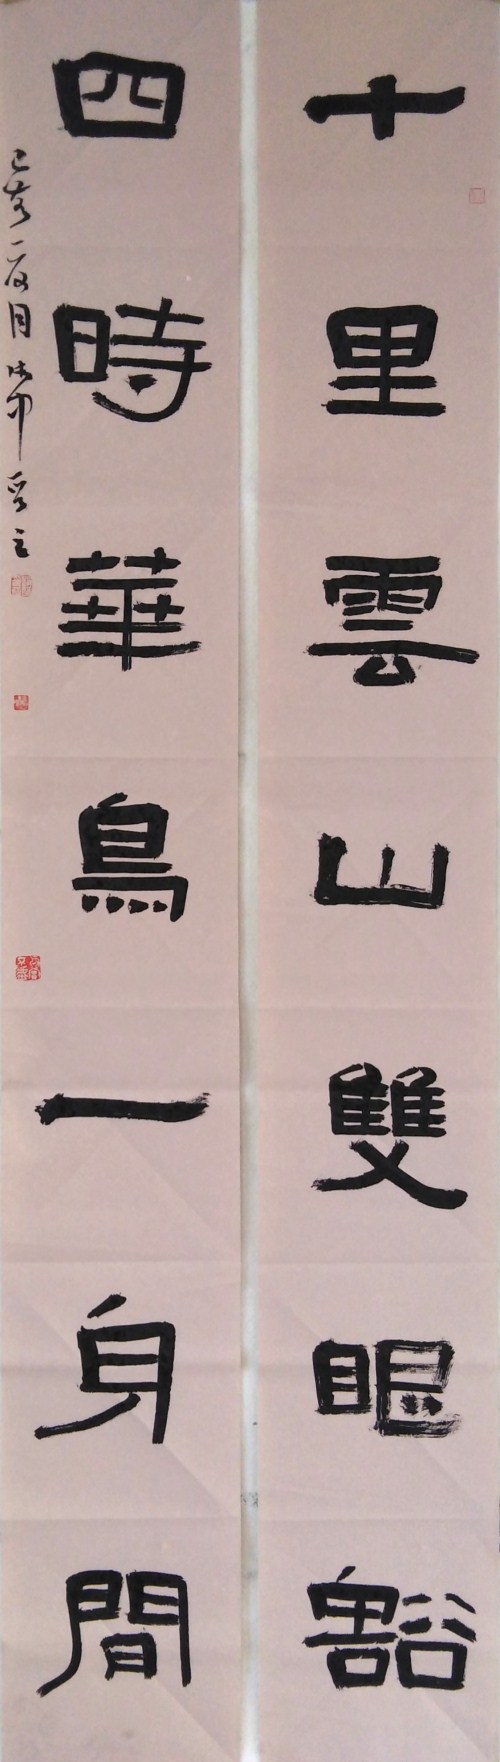 十里雲山雙眼豁
四時華鳥一身間
己亥二月